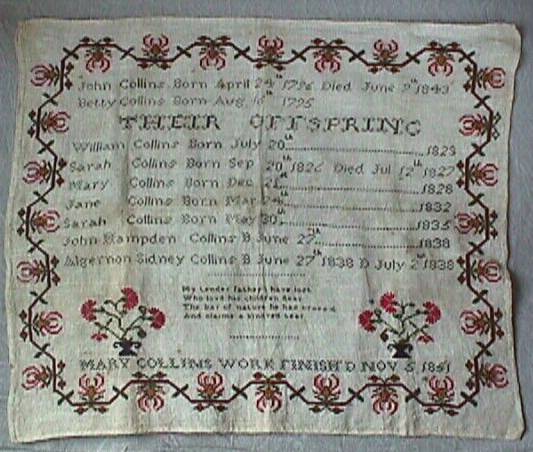 John Collins Born April 24th 1796 Died June 9th 1843
Betty Collins Born Aug 16th 1795
THEIR OFFSPRING
William Collins Born July 20th 1823
Sarah Collins Born Sep 20th 1826 Died Jul 12th 1827
Mary Collins Born Dec 21st 1828
Jane Collins Born Mar 24th 1832
Sarah Collins Born May 30th 1835
John Hampden Collins B June 27th 1838
Algernon Sidney Collins B June 27th 1838 D July 2nd 1838
My tender father I have lost
Who lovd his children dear
The bar of nature he has crossd
And claims a kindred tear
MARY COLLINS WORK FINISH'D NOV 5 1851